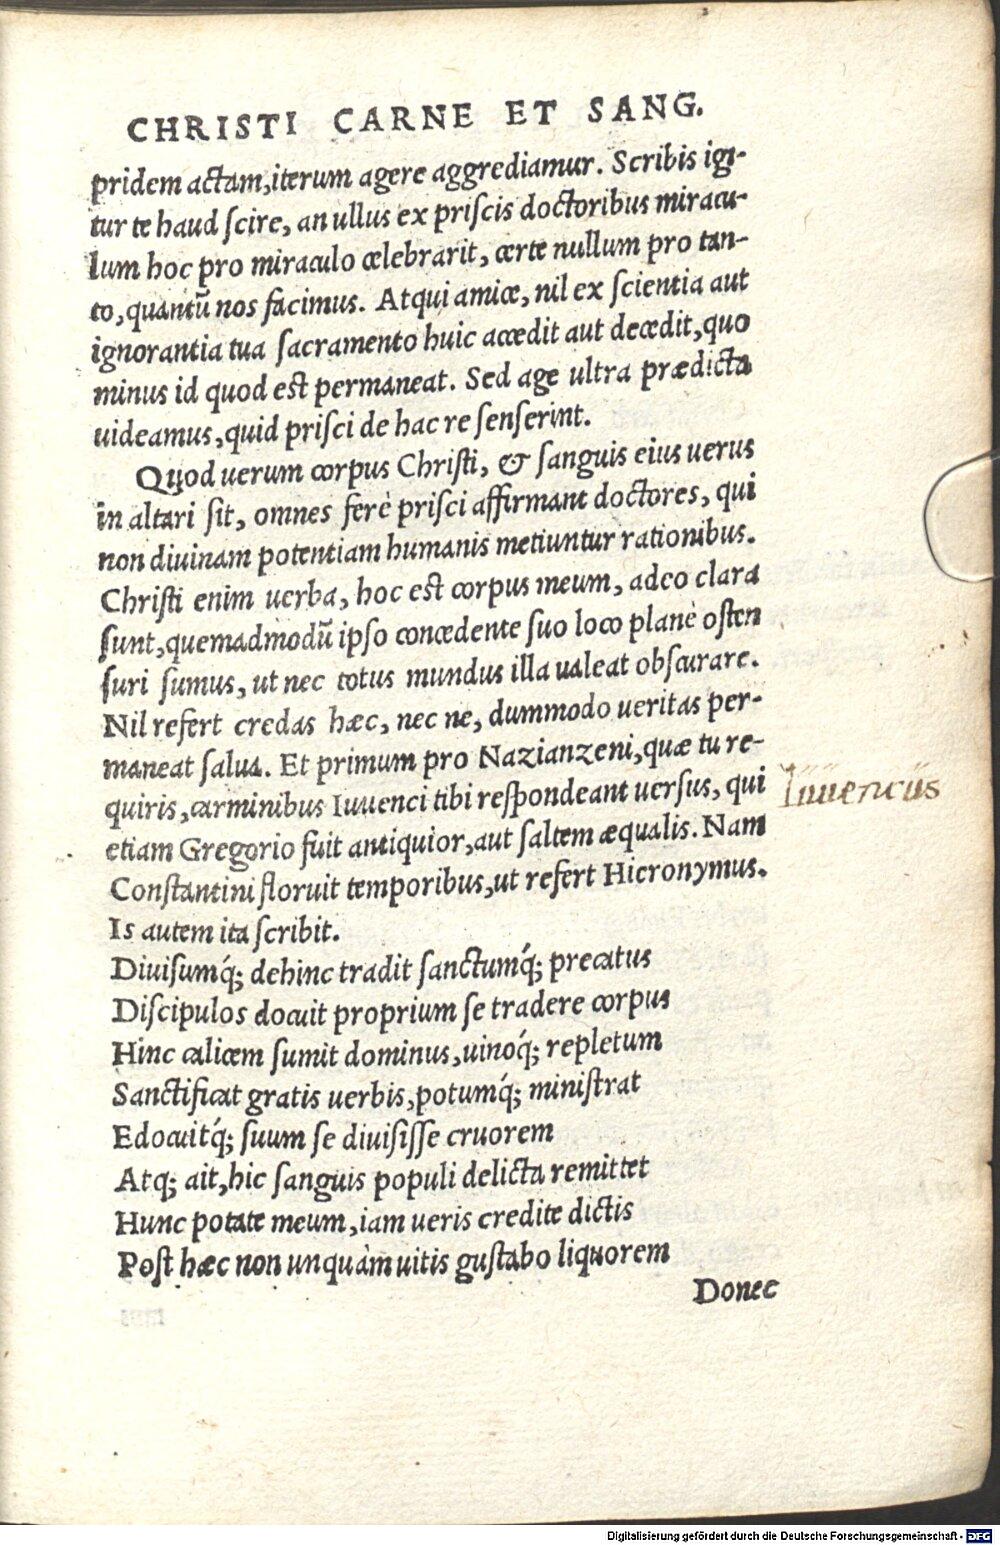 CHRISTI CARNE ET SANG.
pridem actam,iterum agere aggrediamur. Scribis igi-
tur te haud ſcire, an ullus ex priſcis doctoribus miracu-
lum hoc pro miraculo celebrarit, certe nullum pro tan-
to,quantũ nos facimus. Atqui amice, nil ex ſcientia aut
ignorantia tua ſacramento huic accedit aut decedit,quo
minus id quod est permaneat. Sed age ultra prædicta
uideamus,quid priſci de hac re ſenſerint.
Quod uerum corpus Chriſti, & ſanguis eius uerus
in altari ſit, omnes ferè priſci affirmant doctores, qui
non diuinam potentiam humanis metiuntur rationibus.
Chriſti enim uerba, hoc est corpus meum, adeo clara
ſunt,quemadmodũ ipſo concedente ſuo loco planè oſten
ſuri ſumus, ut nec totus mundus illa ualeat obſcurare.
Nil refert credas hæc, nec ne, dummodo ueritas per-
maneat ſalua. Et primum pro Nazianzeni,quæ tu re-
quiris,carminibus Iuuenci tibi reſpondeant uerſus, qui
Iuuencus
etiam Gregorio fuit antiquior,aut ſaltem æqualis. Nam
Conſtantini floruit temporibus,ut refert Hieronymus.
Is autem ita ſcribit.
Diuiſumq́; dehinc tradit ſanctumq́; precatus
Diſcipulos docuit proprium ſe tradere corpus
Hinc calicem ſumit dominus,uinoq́; repletum
Sanctificat gratis uerbis,potumq́; miniſtrat
Edocuitq́; ſuum ſe diuiſiſſe cruorem
Atq; ait,hic ſanguis populi delicta remittet
Hunc potate meum,iam ueris credite dictis
Poſt hæc non unquàm uitis guſtabo liquorem
Donec
Digitalisierung gefördert durch die Deutsche Forschungsgemeinschaft - DFG